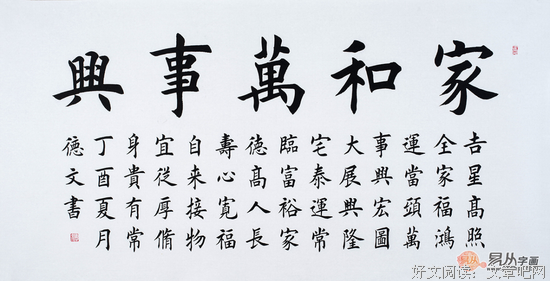 家和萬事興
吉星髙照
全家福鴻
運當頭萬
事興宏圖
大展興隆
宅泰運常
臨富裕家
徳髙人長
壽心寬福
自来接物
宜從厚脩
身貴有常
丁酉夏月
徳文書
易从字画
好文阅读：文章吧网